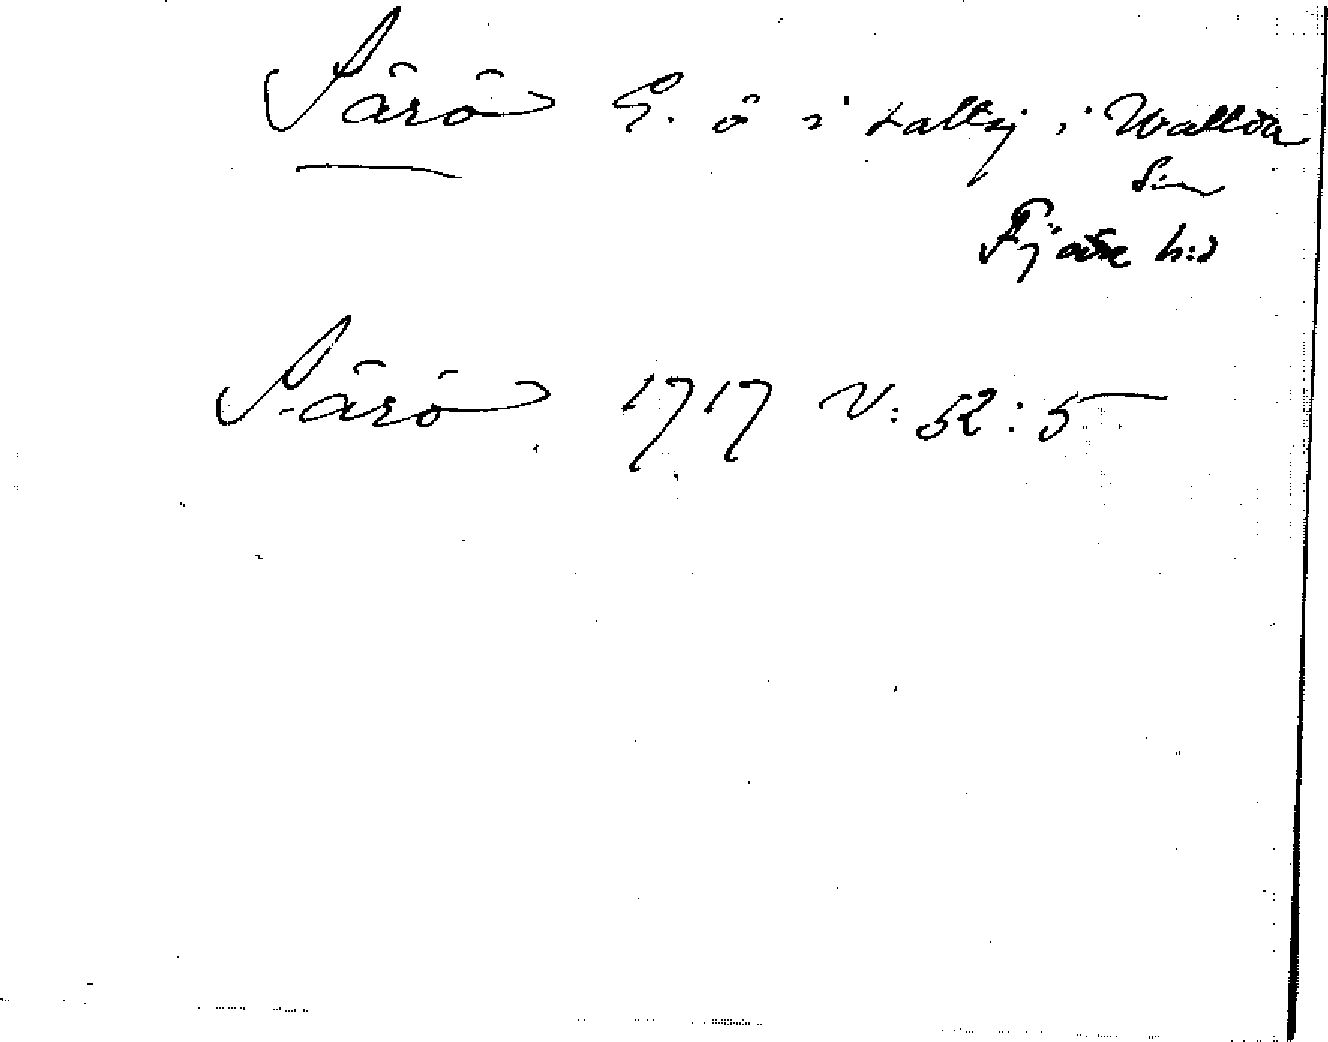 Särö G. ö i Kattegj i Wallda
Sn
Fjäre h:d
Särö 1717 V: 52: 5